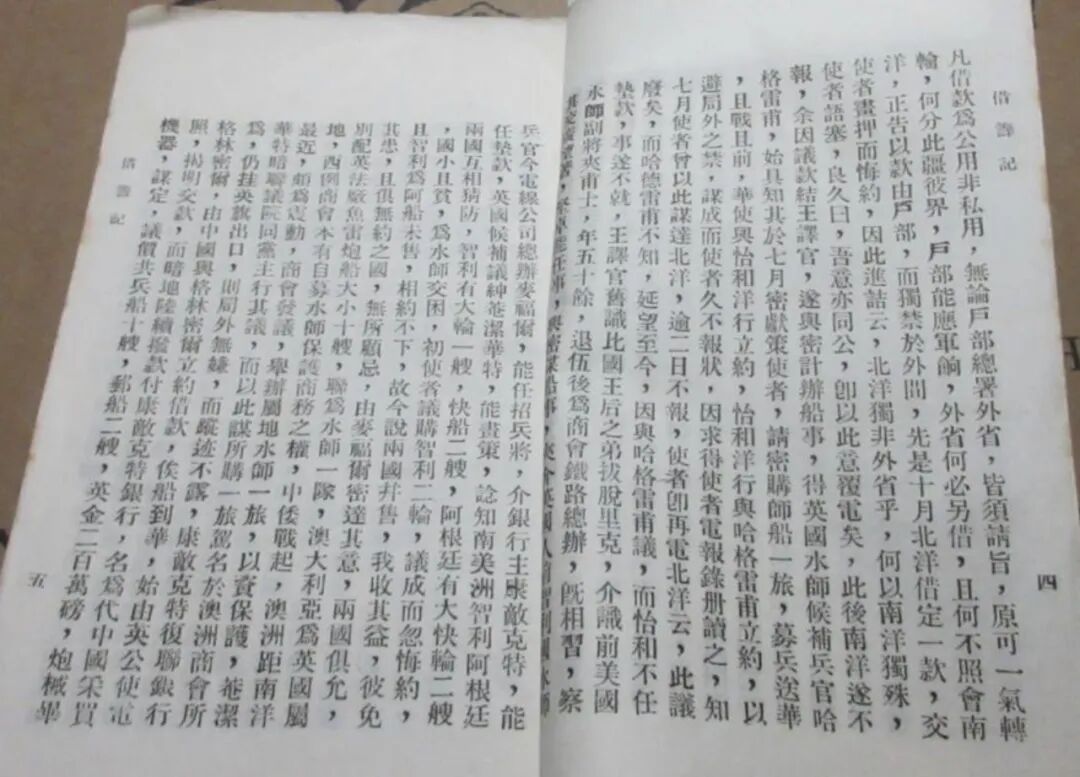 借籌記
凡借款爲公用非私用，無論戶部總署外省，皆須請旨，原可一氣轉
輸，何分此疆彼界，戶部能應軍餉，外省何必另借，且何不照會南
洋，正告以款由戶部，而獨禁於外間，先是十月北洋借定一款，交
使者畫押而悔約，因此進詰云，北洋獨非外省乎，何以南洋獨殊，
使者語塞，良久曰，吾意亦同公，卽以此意覆電矣，此後南洋遂不
報，余因議款結王譯官，遂與密計辦船事，得英國水師候補兵官哈
格雷甫，始具知其於七月密獻策使者，請密購師船一旅，募兵送華
，且戰且前，華使與怡和洋行立約，怡和洋行與哈格雷甫立約，以
避局外之禁，謀成而使者久不報狀，因求得使者電報錄册讀之，知
七月使者曾以此謀達北洋，逾二日不報，使者卽再電北洋云，此議
廢矣，而哈德雷甫不知，延望至今，因與哈格雷甫議，而怡和不任
墊款，事遂不就，王譯官舊識比國王后之弟拔脫里克，介識前美國
水師副將夾甫士，年五十餘，退伍後爲商會鐵路總辦，旣相習，察
四
兵官今電線公司總辦麥福爾，能任招兵將，介銀行主康敵克特，能
任墊款，英國候補議紳菴潔華特，能畫策，諗知南美洲智利阿根廷
兩國互相猜防，智利有大輪一艘，快船二艘，阿根廷有大快輪二艘
，國小且貧，爲水師交困，初使者議購智利二輪，議成而忽悔約，
且智利爲阿船未售，相約不下，故今說兩國幷售，我收其益，彼免
其患，且俱無約之國，無所顧忌，由麥福爾密達其意，兩國俱允，
別配英法廠魚雷炮船大小十艘，聯爲水師一隊，澳大利亞爲英國屬
地，西例商會本有自募水師保護商務之權，中倭戰起，澳洲距南洋
最近，頗爲震動，商會發議，舉辦屬地水師一旅，以資保護，菴潔
華特暗聯議院同黨主行其議，而以此謀所購一旅駕名於澳洲商會所
爲，仍挂英旗出口，則局外無嫌，而蹤迹不露，康敵克特復聯銀行
格林密爾，由中國與格林密爾立約借款，俟船到華，始由英公使電
照，揭明交款，而暗地陸續撥款付康敵克特銀行，名爲代中國采買
機器，謀定，議價共兵船十艘，郵船二艘，英金二百萬磅，炮械畢
借籌記
五